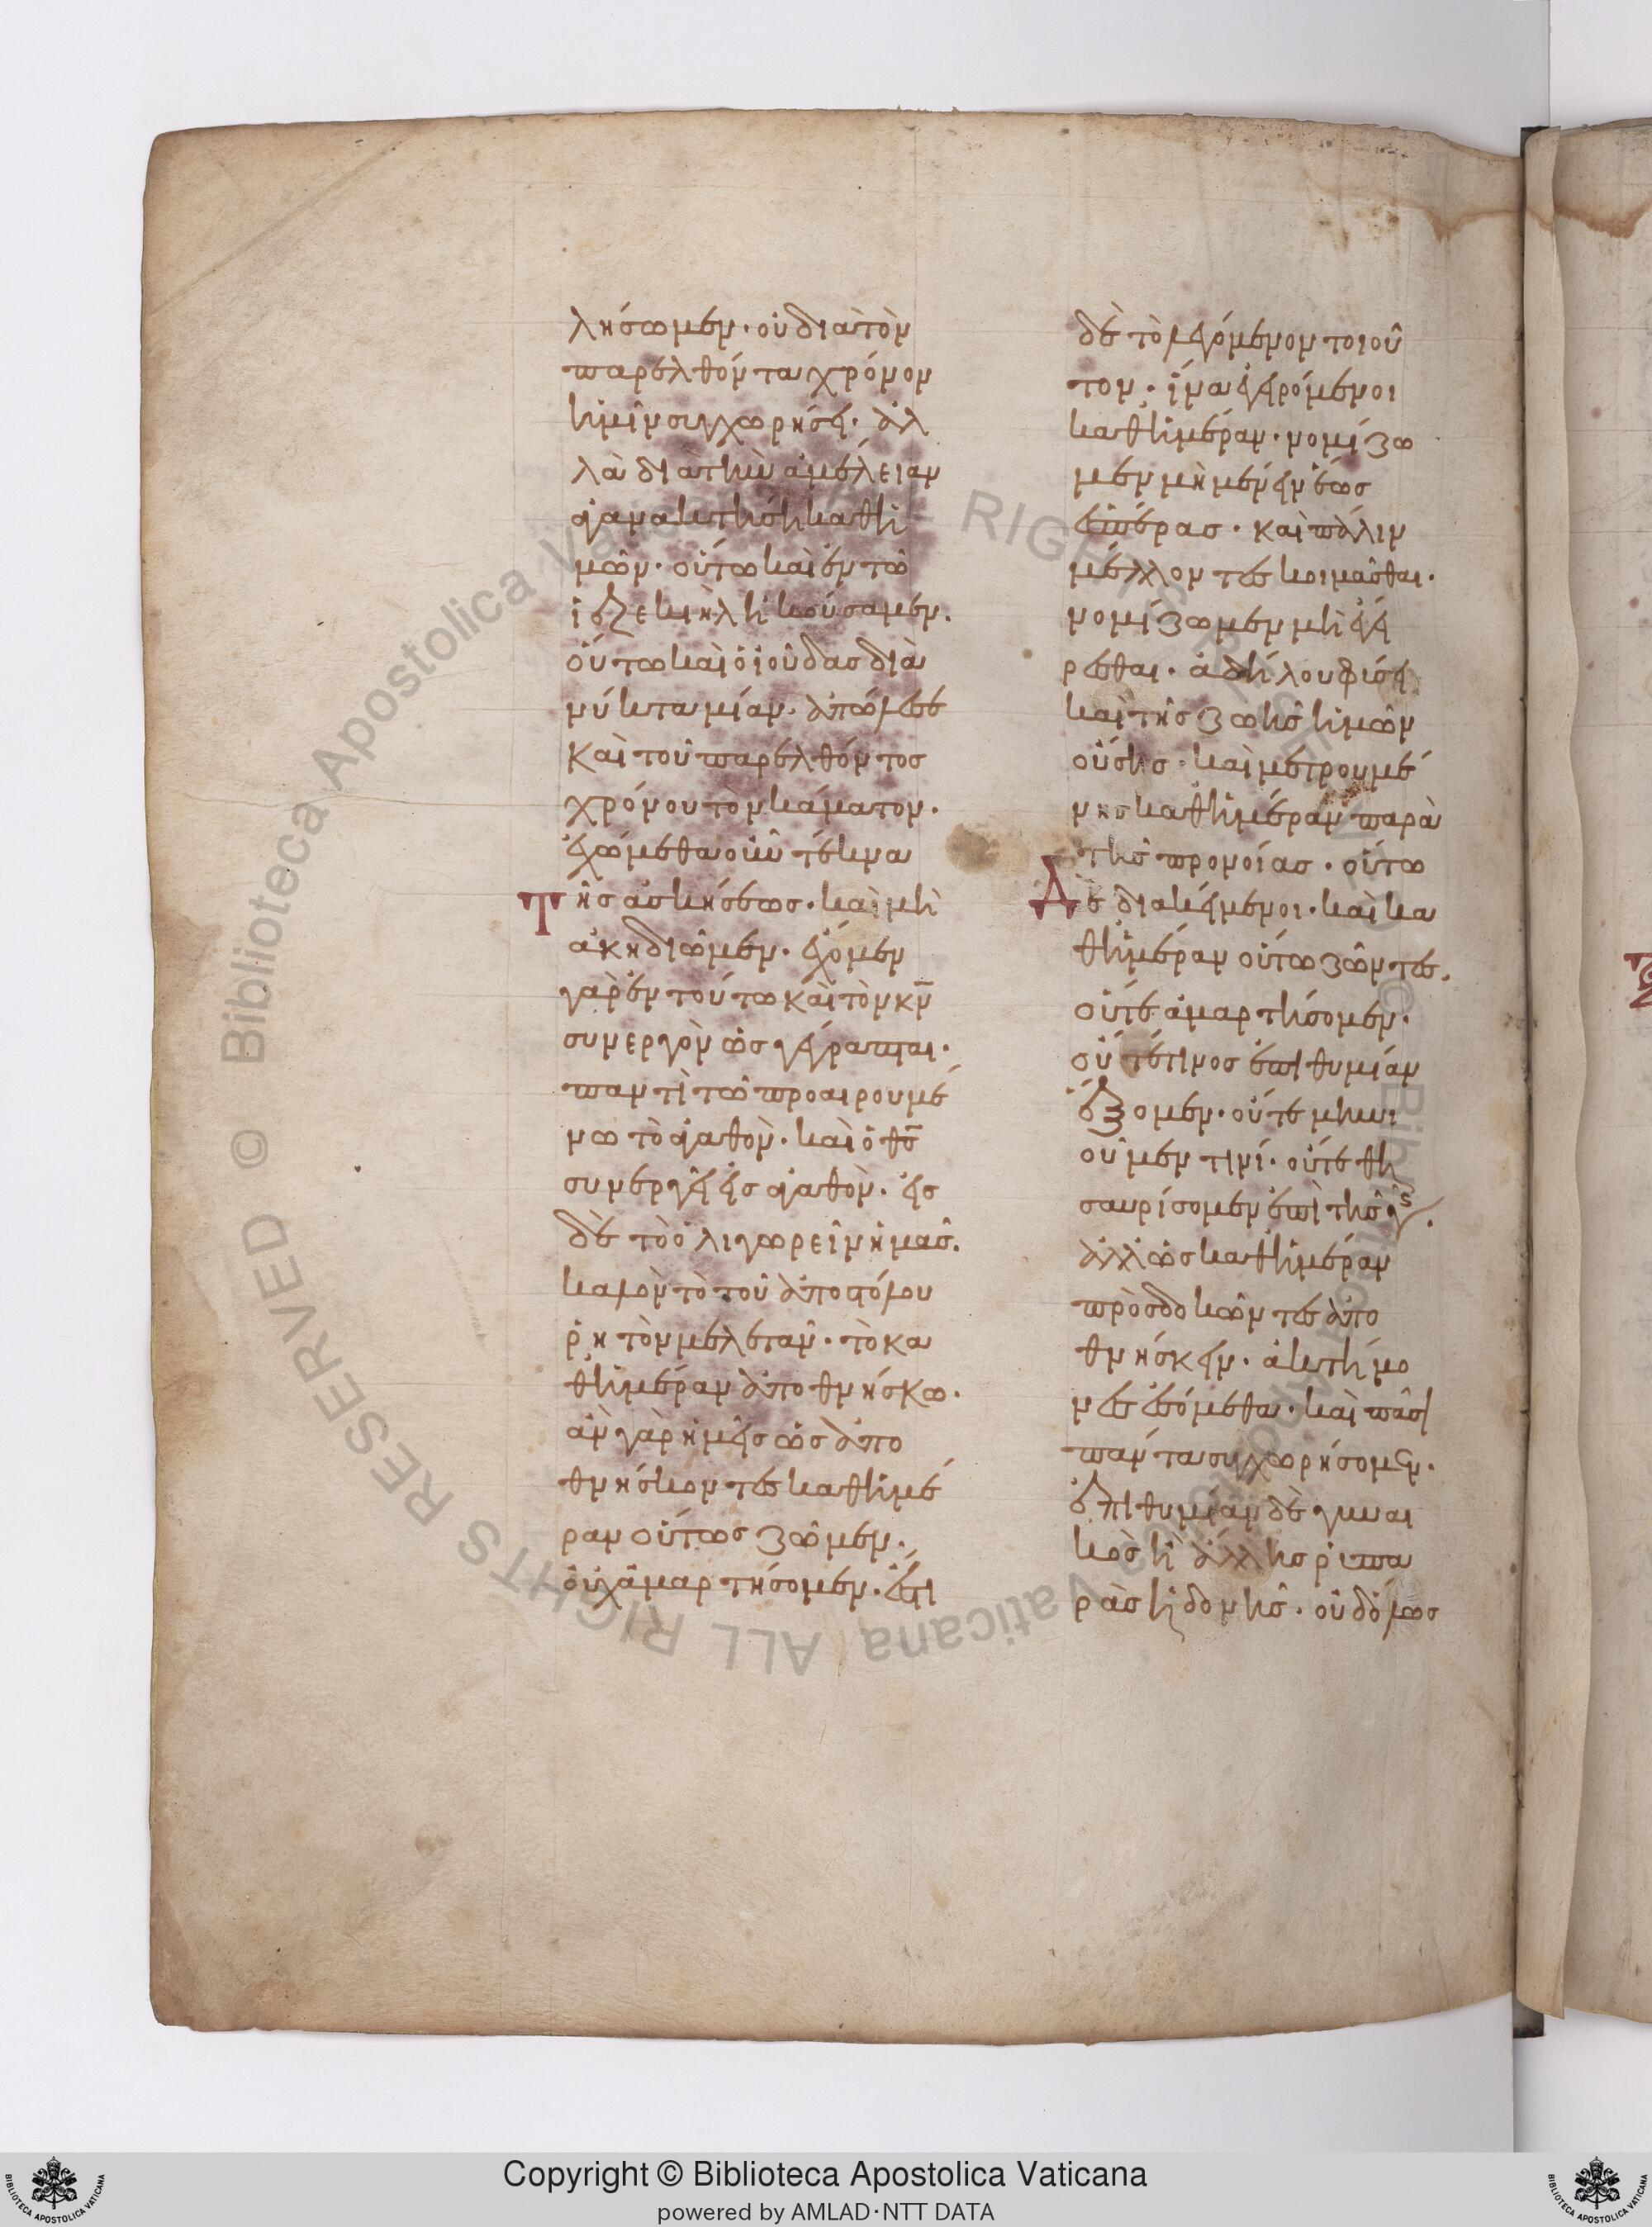 λήσωμεν· οὐ διὰ τὸν
παρελθόντα χρόνον
ἡμῖν συγχωρήσει· ἀλ
λὰ διὰ τὴν ἀμέλειαν
ἀγανακτήσει καθ ἡ
μῶν· οὕτω καὶ ἐν τῶ
ἰεζεκιὴλ ἠκούσαμεν.
οὕτω καὶ ὁ ἰούδας διὰ
νύκτα μίαν· ἀπώλεσε
καὶ τοῦ παρελθόντος
χρόνου τὸν κάματον.
ἐχώμεθα οὖν τέκνα
τῆς ἀσκήσεως· καὶ μὴ
ἀκηδιῶμεν· ἔχομεν
γὰρ ἐν τούτω καὶ τὸν κν
συνεργὸν ὡς γέγραπται·
παντὶ τῶ προαιρουμέ
νω τὸ ἀγαθὸν· καὶ ὁ θς
συνεργεῖ εἰς ἀγαθὸν· εἰς
δὲ τὸ ὀλιγωρεῖν ἡμᾶς.
καλὸν τὸ τοῦ ἀποστόλου
ῥητὸν μελετᾶν· τὸ κα
θ ἡμέραν ἀποθνήσκω·
ἂν γὰρ ἡμεῖς ὡς ἀπο
θνήσκοντες καθ ἡμέ
ραν οὕτως ζῶμεν·
οὐχ ἁμαρτήσομεν· ἔστι
δὲ τὸ λεγόμενον τοιοῦ
τον· ἵνα ἐγειρόμενοι
καθ ἡμέραν· νομίζω
μεν μὴ μένειν ἕως
ἑσπέρας· καὶ πάλιν
μέλλοντες κοιμᾶσθαι·
νομίζωμεν μὴ ἐγεί
ρεσθαι· ἀδήλου φύσει
καὶ τῆς ζωῆς ἡμῶν
οὔσης· καὶ μετρουμέ
νης καθ ἡμέραν παρὰ
τῆς προνοίας· οὕτω
δὲ διακείμενοι· καὶ κα
θ ἡμέραν οὕτω ζῶντες.
οὔτε ἁμαρτήσομεν·
οὔτέ τινος ἐπιθυμίαν
ἕξομεν· οὔτε μηνι
οῦμεν τινί· οὔτε θη
σαυρίσομεν ἐπὶ τῆς γῆς.
ἀλλ ὡς καθ ἡμέραν
προσδοκῶντες ἀπο
θνήσκειν· ἀκτήμο
νες ἐσόμεθα· καὶ πᾶσι
πάντα συγχωρήσομεν·
ἐπιθυμίαν δὲ γυναι
κὸς ἢ ἄλλης ῥυπα
ρᾶς ἡδονῆς· οὐδόλως
Copyright © Biblioteca Apostolica Vaticana
powered by AMLAD·NTT DATA